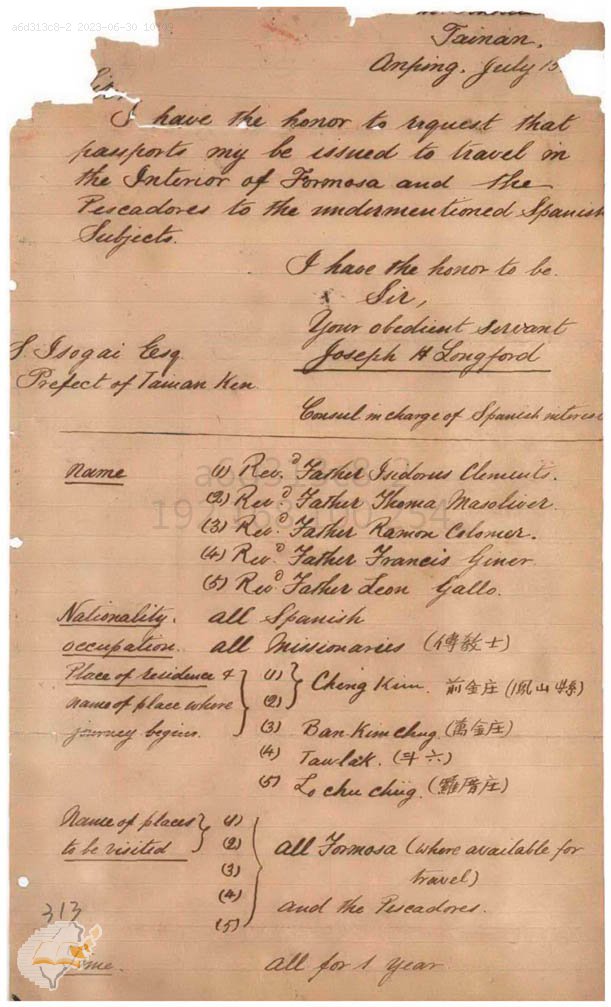 a6d313c8-2 2023-06-30
Tainan,
Anping. July 15
Sir,
I have the honor to request that
passports my be issued to travel in
the Interior of Formosa and the
Pescadores to the undermentioned Spanish
Subjects.
I have the honor to be
Sir,
Your obedient servant
Joseph H Longford
S. Isogai Esq.
Prefect of Tainan Ken
Consul in charge of Spanish interest
Name (1) Revd Father Isidorus Clements.
(2) Revd Father Thoma Masoliver.
(3) Revd Father Ramon Colomer.
(4) Revd Father Francis Giner
(5) Revd Father Leon Gallo.
Nationality. all Spanish
occupation. all Missionaries (傳敎士)
Place of residence & (1) Ching Kim. 前金庄 (鳳山縣)
name of place where (2)
journey begins. (3) Ban Kim chng (萬金庄)
(4) Tawlak. (斗六)
(5) Lo chu chng. (羅厝庄)
Name of places (1)
to be visited (2) all Formosa (where available for
(3) travel)
(4) and the Pescadores.
(5)
313
Time. all for 1 year